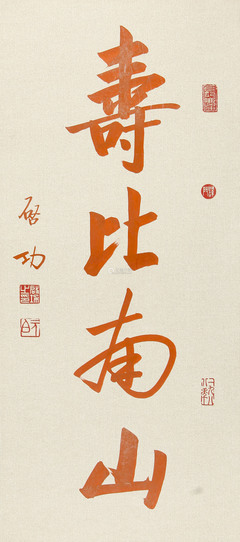 壽比南山
启功